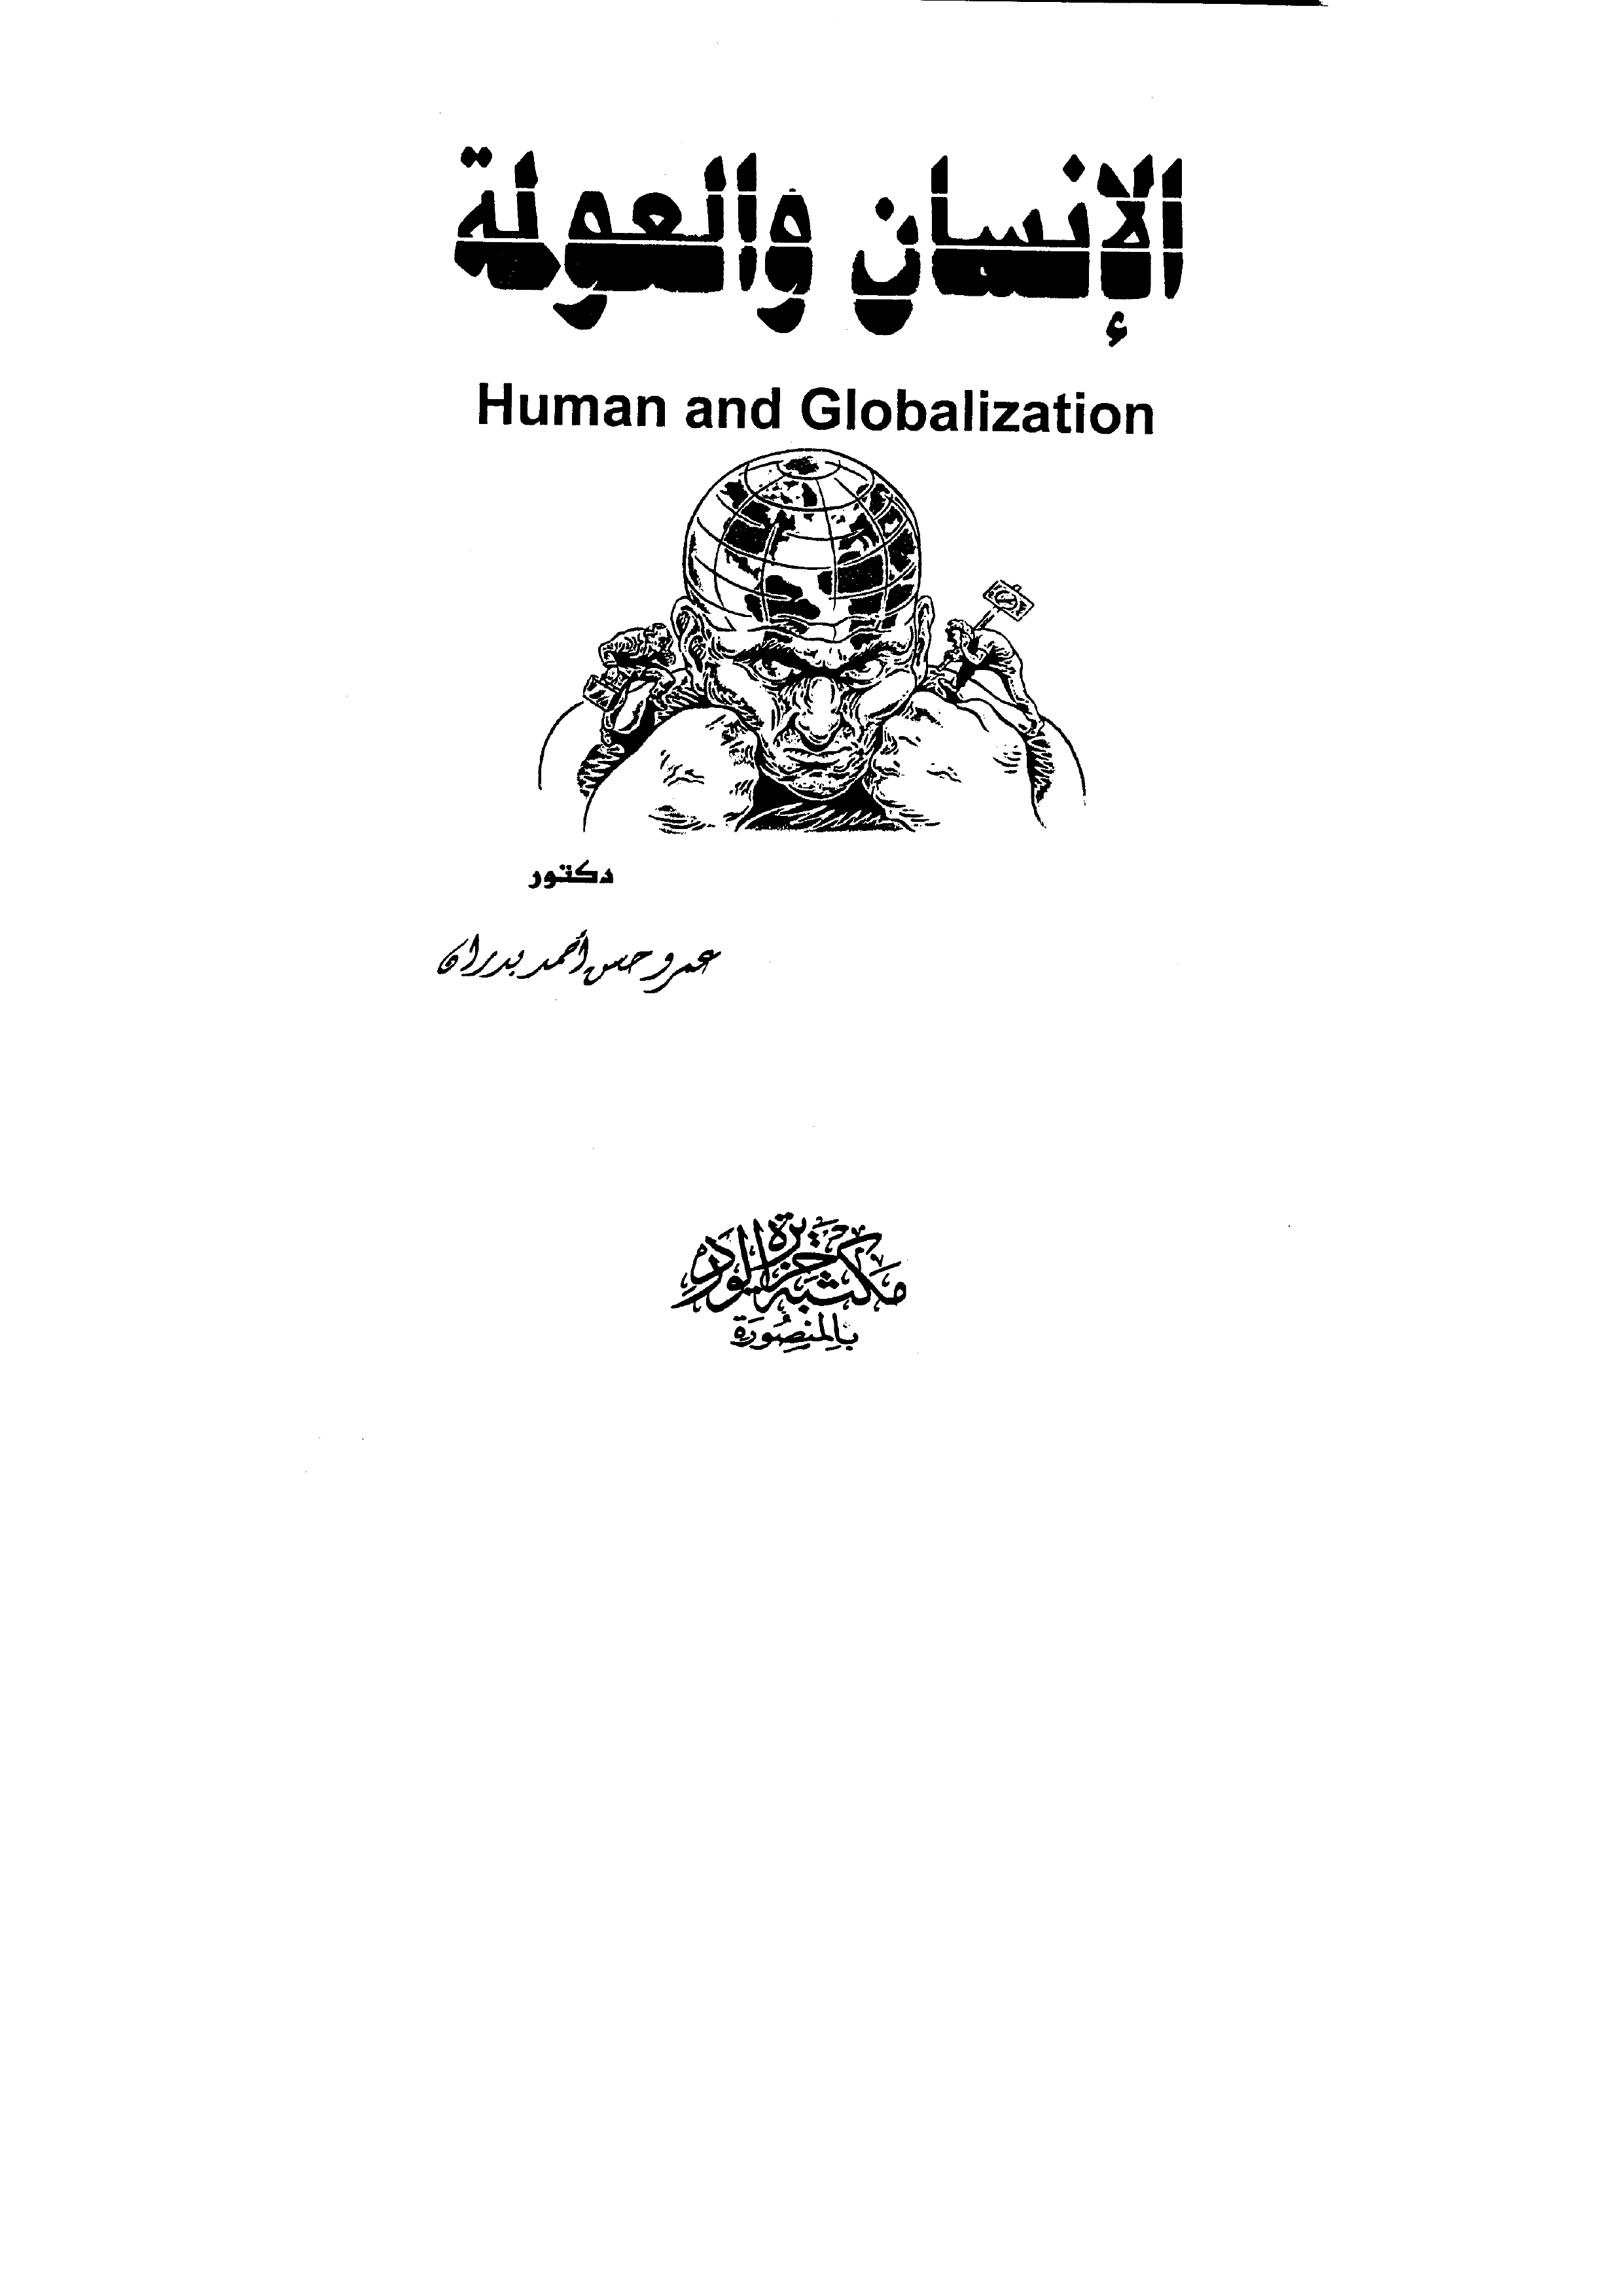 الإنسان والعولمة
Human and Globalization
دكتور
عمرو حسن أحمد بدران
مكتبة جزيرة الورد
بالمنصورة